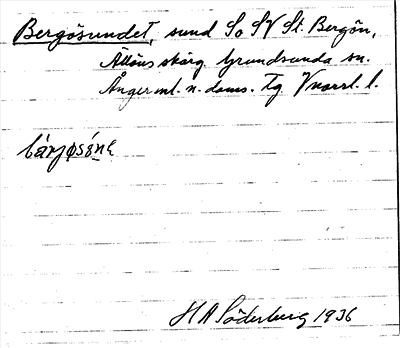 Bergösundet, sund So SV St. Bergön,
skärg. Grundsunda sn.
Ångerml. n. doms. Tg. Vnorrl. l.
H A Söderberg 1936